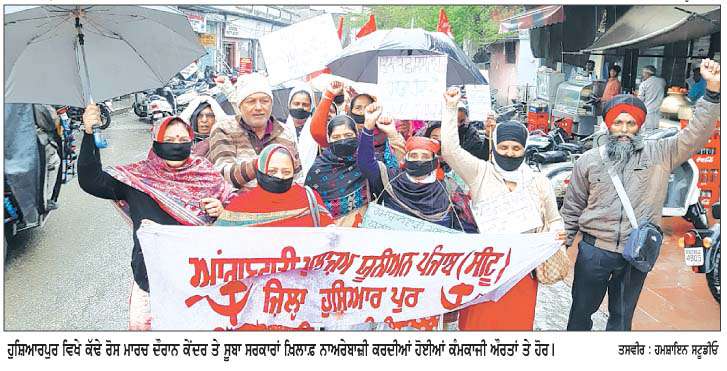 ਆਂਗਣਵਾੜੀ ਮੁਲਾਜ਼ਮ ਯੂਨੀਅਨ ਪੰਜਾਬ (ਸੀਟੂ)
ਜ਼ਿਲ੍ਹਾ ਹੁਸ਼ਿਆਰ ਪੁਰ
ਹੁਸ਼ਿਆਰਪੁਰ ਵਿਖੇ ਕੱਢੇ ਰੋਸ ਮਾਰਚ ਦੌਰਾਨ ਕੇਂਦਰ ਤੇ ਸੂਬਾ ਸਰਕਾਰਾਂ ਖ਼ਿਲਾਫ਼ ਨਾਅਰੇਬਾਜ਼ੀ ਕਰਦੀਆਂ ਹੋਈਆਂ ਕੰਮਕਾਜੀ ਔਰਤਾਂ ਤੇ ਹੋਰ। ਤਸਵੀਰ : ਹਮਸ਼ਾਇਨ ਸਟੂਡੀਓ